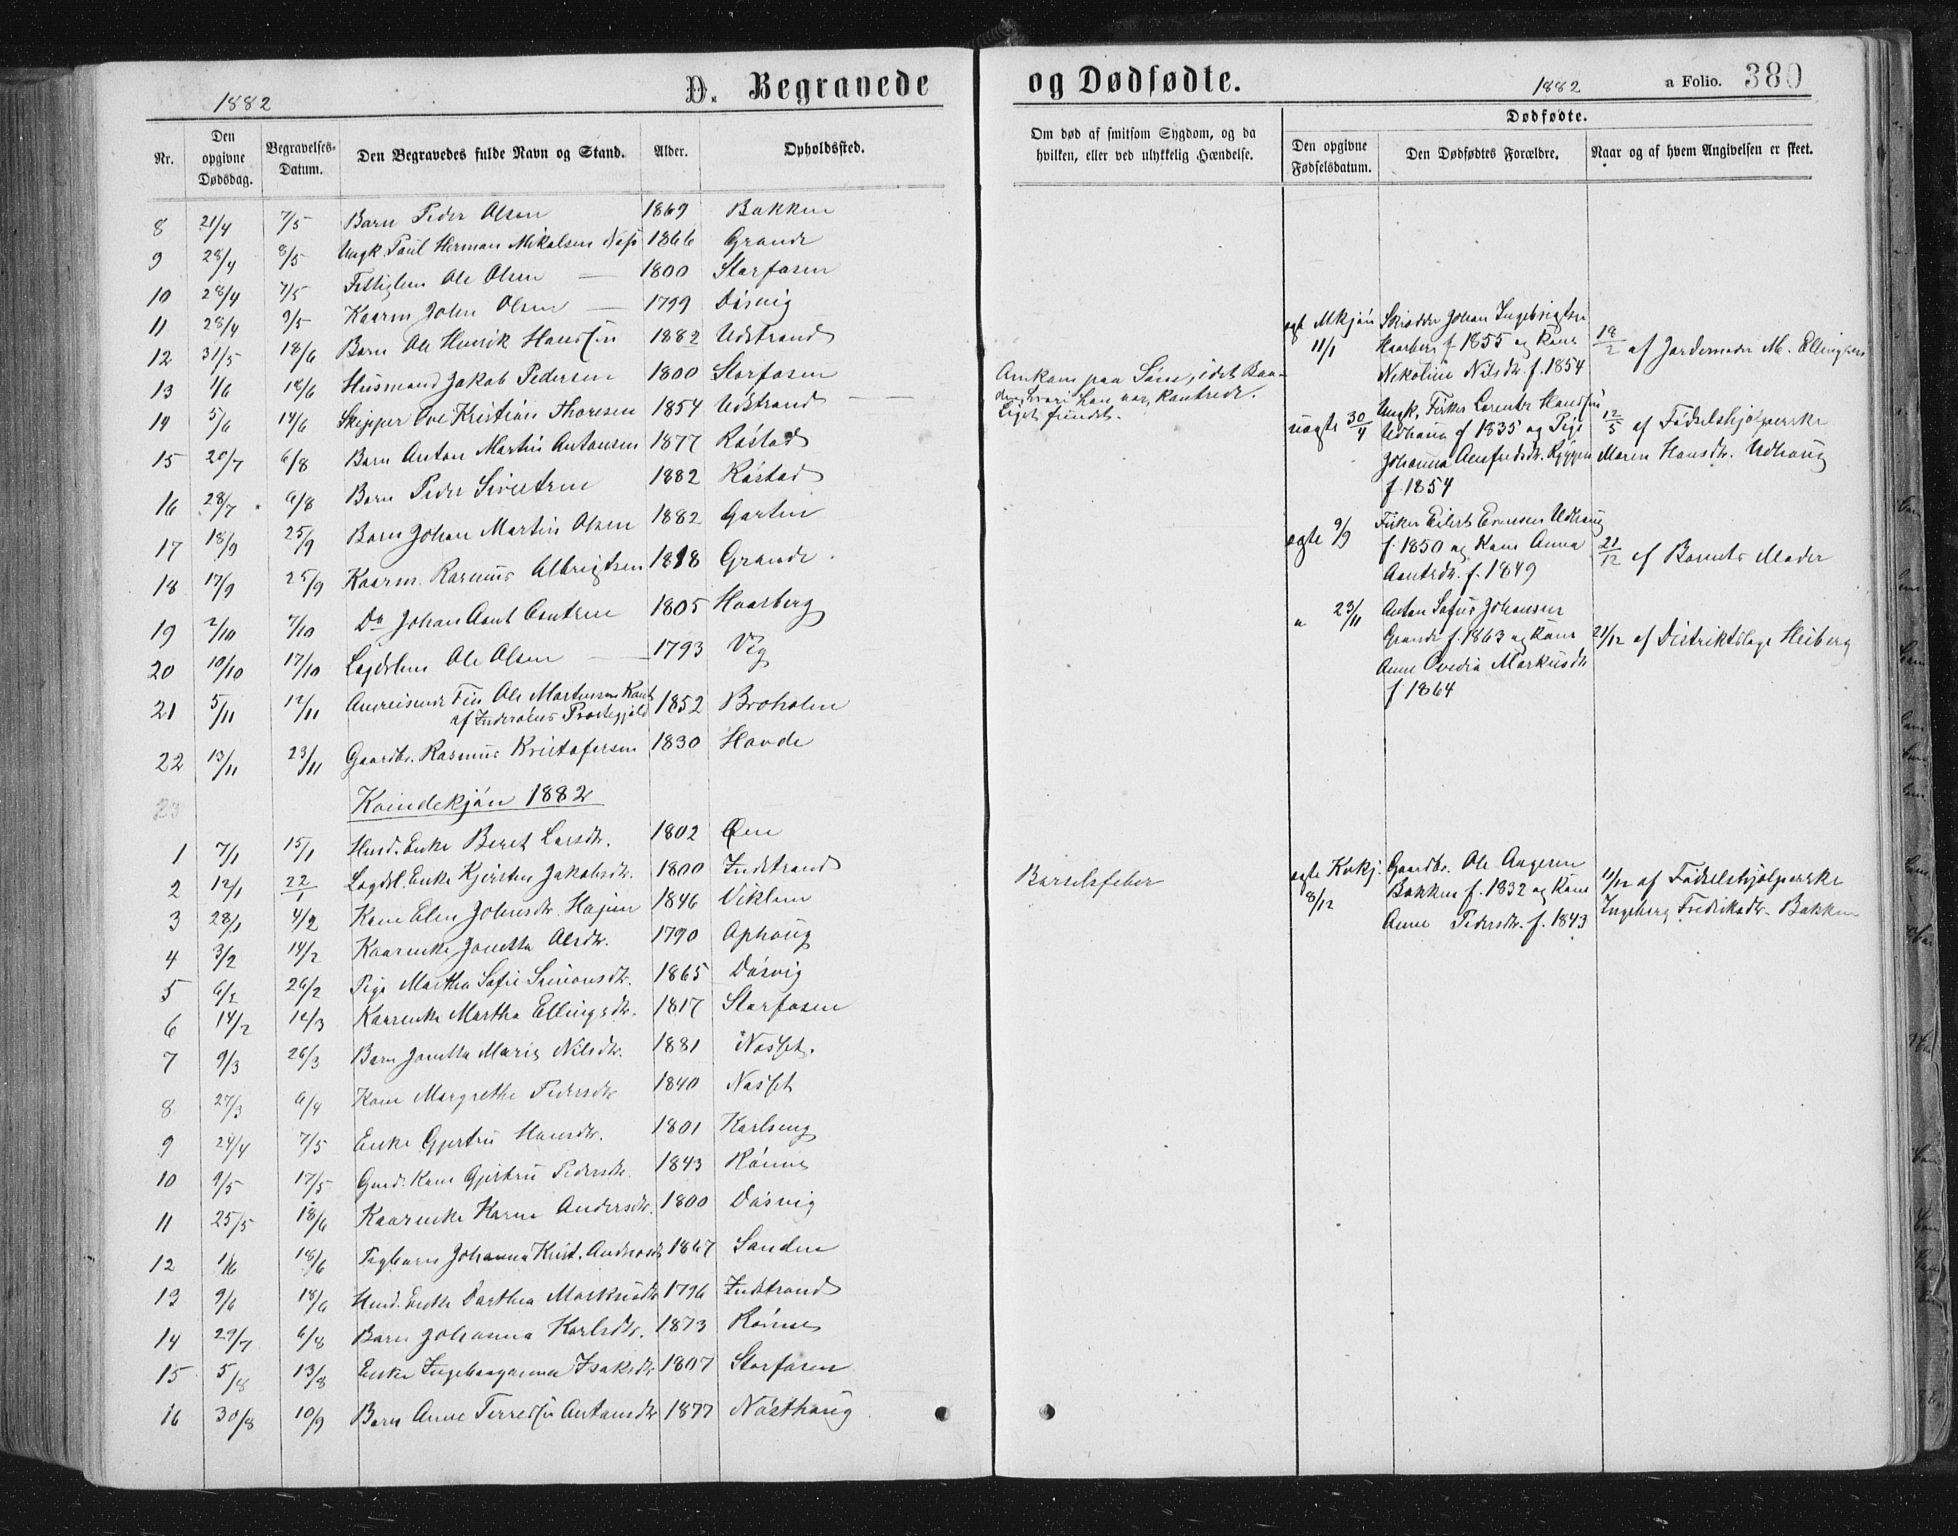 1882
D. Begravede
Nr.
Den opgivne Dødsdag.
Begravelses-Datum.
Den Begravedes fulde Navn og Stand.
Alder.
Opholdssted.
8 21/4 7/5 Barn Peder Olsen 1869 Bakken
9 28/4 8/5 Ungk. Paul Herman Mikalsen 1866 Grande
10 28/4 7/5 Ole Olsen — 1800 Storfosen
11 28/4 9/5 Kaarm. John Olsen — 1799 Døsvig
12 31/5 18/6 Barn Ole Henrik Hansen 1882 Udstrand
13 1/6 18/6 Husmand Jakob Pedersen 1800 Storfosen
14 5/6 14/6 Skipper Ove Kristian Thoresen 1854 Udstrand
15 20/7 6/8 Barn Anton Martin Antonsen 1877 Røstad
16 28/7 6/8 Barn Peder 1882 Røstad
17 18/9 25/9 Barn Johan Martin Olsen 1882 Garten
18 17/9 25/9 Kaarm. Rasmus Albrigtsen 1818 Grande
19 2/10 7/10 Do Johan 1805 Haarberg
20 10/10 17/10 Ole Olsen — 1793 Vig
21 5/11 12/11 Ole Martinsen
af Inderøens Præstegjeld 1852 Broholen
22 13/11 23/11 Gaardbr. Rasmus Kristofersen 1830 Hovde
23
Kvindekjøn 1882
1 7/1 15/1 Husm. Enke Beret Larsdtr. 1802 Øen
2 12/1 22/1 Logdsl. Enke Kjersten Jakobsdtr. 1800 Indstrand
3 28/1 4/2 Kone Elen Johnsdtr. 1846 Viklem
4 3/2 14/2 Kaarenke Jonetta Olsdtr. 1790 Ophoug
5 6/2 26/2 Pige Martha Sofie Simonsdtr. 1865 Døsvig
6 14/2 12/3 Kaarenke Martha Ellingsdtr. 1817 Storfosen
7 9/3 26/3 Barn Jonetta Maria Nilsdtr. 1881 Næsset.
8 27/3 6/4 Kone Margrethe Pedersdtr 1840 Næsset
9 24/4 7/5 Enke Gjertru Hansdtr. 1801 Karlseng
10 9/5 17/5 Gmd. Kone Gjertru Pedersdtr. 1843 Rønne
11 25/5 18/6 Kaarenke Karen Andersdtr. 1800 Døsvig
12 1/6 18/6 Pigbarn Johanna Krist. 1867 Sanden
13 9/6 18/6 Husm. Enke Dorthea Markusdtr 1796 Indstrand
14 29/7 6/8 Barn Johanna Karlsdtr. 1873 Rønne
15 5/8 13/8 Enke Isaksdtr 1807 Storfosen
16 30/8 10/9 Barn Anne Antonsdtr 1877 Næsthoug
og Dødfødte.
1882
a Folio. 380
Om død af smitsom Sygdom, og da hvilken, eller ved ulykkelig Hændelse.
Dødfødte.
Den opgivne Fødselsdatum.
Den Dødfødtes Forældre.
Naar og af hvem Angivelsen er skeet.
Omkom paa Søen, idet Baa-
den, hvori han var, kantrede.
Liget fundet.
Barselsfeber
ægt Mkjøn
11/1
Skrædder Johan Ingebrigtsen
Haarberg f 1855 og Kone
Nikoline Nilsdtr. f. 1854
12/2 af Jordemoder M. Ellingsen
uægte 30/4
Ungk. Fisker Lorents Hansen
Udhaug f 1835 og Pige
Johanna
f. 1854
12/5 af Fødselshjælperske
Maren Hansdtr. Udhoug
ægte 9/9
Fisker Eilert Udhaug
f. 1850 og Kone Anna
f. 1849
21/12 af Barnets Moder
" 23/11
Anton Sofus Johansen
Grande f. 1863 og Kone
Anne Ovedia Markusdtr
f 1864
21/12 af Distriktslæge Heiberg
ægte Kvkj.
8/12
Gaardbr. Ole
Bakken f. 1832 og Kone
Anne Pedersdtr. f. 1843
11/12 af Fødselshjælperske
Ingeborg Fredriksdtr. Bakken